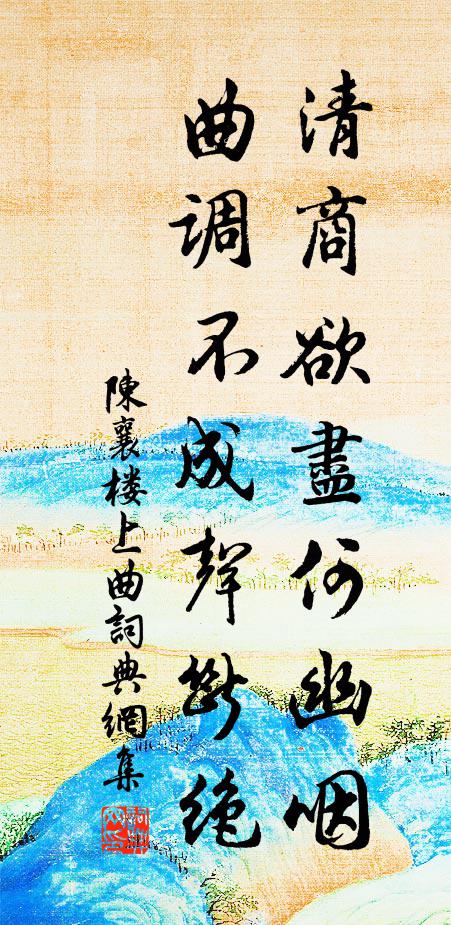 清商欲盡何幽咽
曲调不成聲断絶
陳襄楼上曲詞典網集